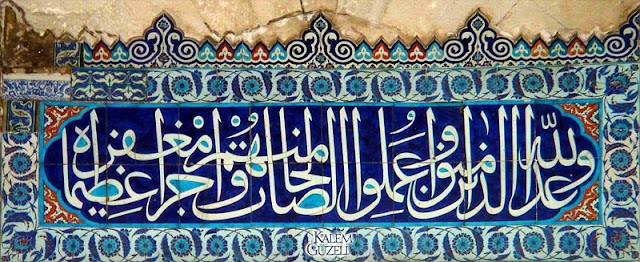 وعد الله الذين امنوا وعملوا الصالحات منهم مغفرة واجرا عظيما
KALEM
GÜZELİ